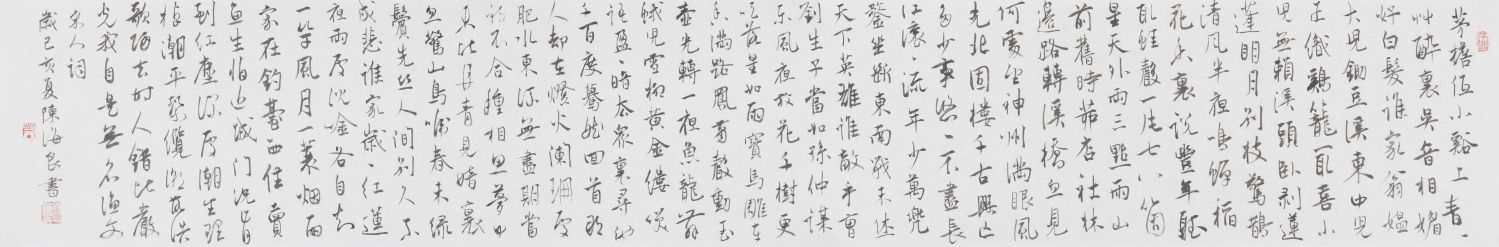 茅檐低小溪上青〻
草醉裏吴音相媚
好白髮誰家翁媪
大兒鋤豆溪東中兒
正織鷄籠最喜小
兒無賴溪頭卧剥蓮
蓬明月别枝驚鵲
清風半夜鳴蟬稻
花香裏説豐年聽
取蛙聲一片七八個
星天外兩三點雨山
前舊時茅店社林
邊路轉溪橋忽見
何處望神州滿眼風
光北固樓千古興亡
多少事悠〻不盡長
江滚〻流年少萬兜
鍪坐斷東南戰未休
天下英雄誰敵手曹
劉生子當如孫仲謀
東風夜放花千樹更
吹落星如雨寶馬雕車
香滿路鳳簫聲動玉
壺光轉一夜魚龍舞
蛾兒雪柳黄金縷笑
語盈〻暗去衆裏尋他
千百度驀然回首那
人却在燈火闌珊處
肥水東流無盡期當
初不合種相思夢中
未比丹青見暗裏
忽驚山鳥啼春未緑
鬢先丝人間别久不
成悲誰家歲〻紅蓮
夜兩處沉吟各自知
一竿風月一蓑烟雨
家在釣臺西住賣
魚生怕近城門況肯
到紅塵深處潮生理
棹潮平繫纜潮落浩
歌歸去時人錯比嚴
光我自是無名漁父
宋人詞
歲己亥夏陳海良書